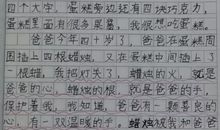 四个大字，蛋糕旁边还有四块巧克力，
蛋糕里面有很多果酱，我很想吃蛋糕。
爸爸今年四十岁了，爸爸在蛋糕周
围插上四根蜡烛，又在蛋糕中间插上了
一根蜡，我把灯关了，蜡烛的火，就是
爸爸的心，蜡烛的根，就是爸爸的手，
保护着我，我知道，爸爸有一颗善良的
心，有一双温暖的手。蜡烛被我和爸爸